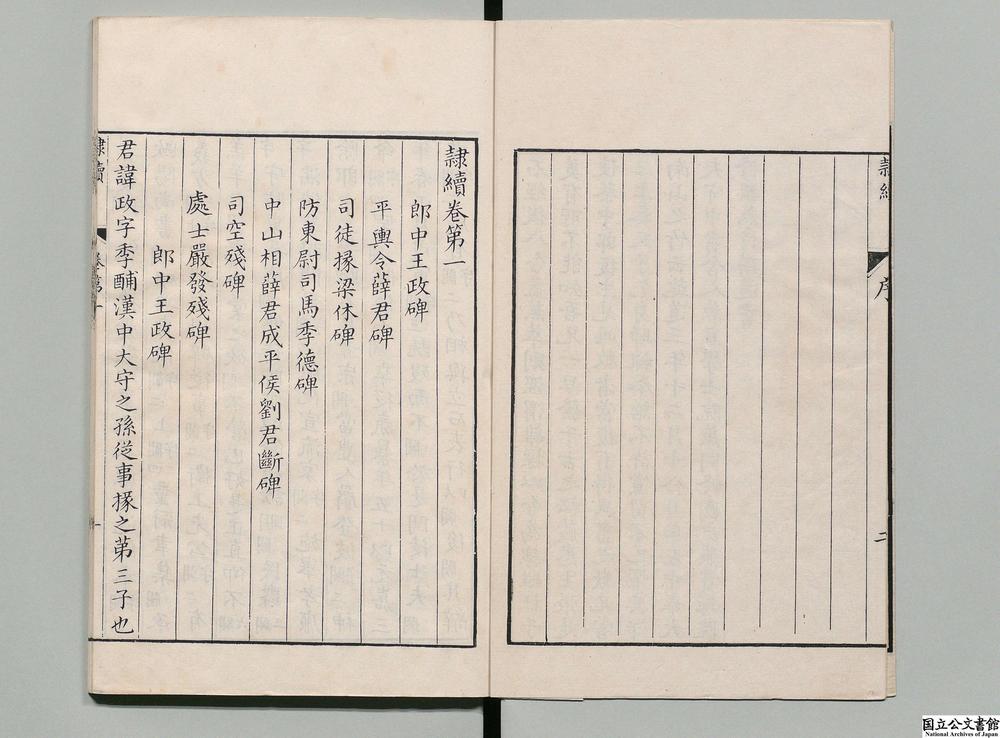 隷續
序
二
隷續卷第一
郎中王政碑
平輿令薛君碑
司徒掾梁休碑
防東尉司馬季德碑
中山相薛君成平侯劉君斷碑
司空殘碑
處士嚴發殘碑
郎中王政碑
君諱政字季酺漢中大守之孫従事掾之苐三子也
隷續
卷第一
一
国立公文書館
National Archives of Japan